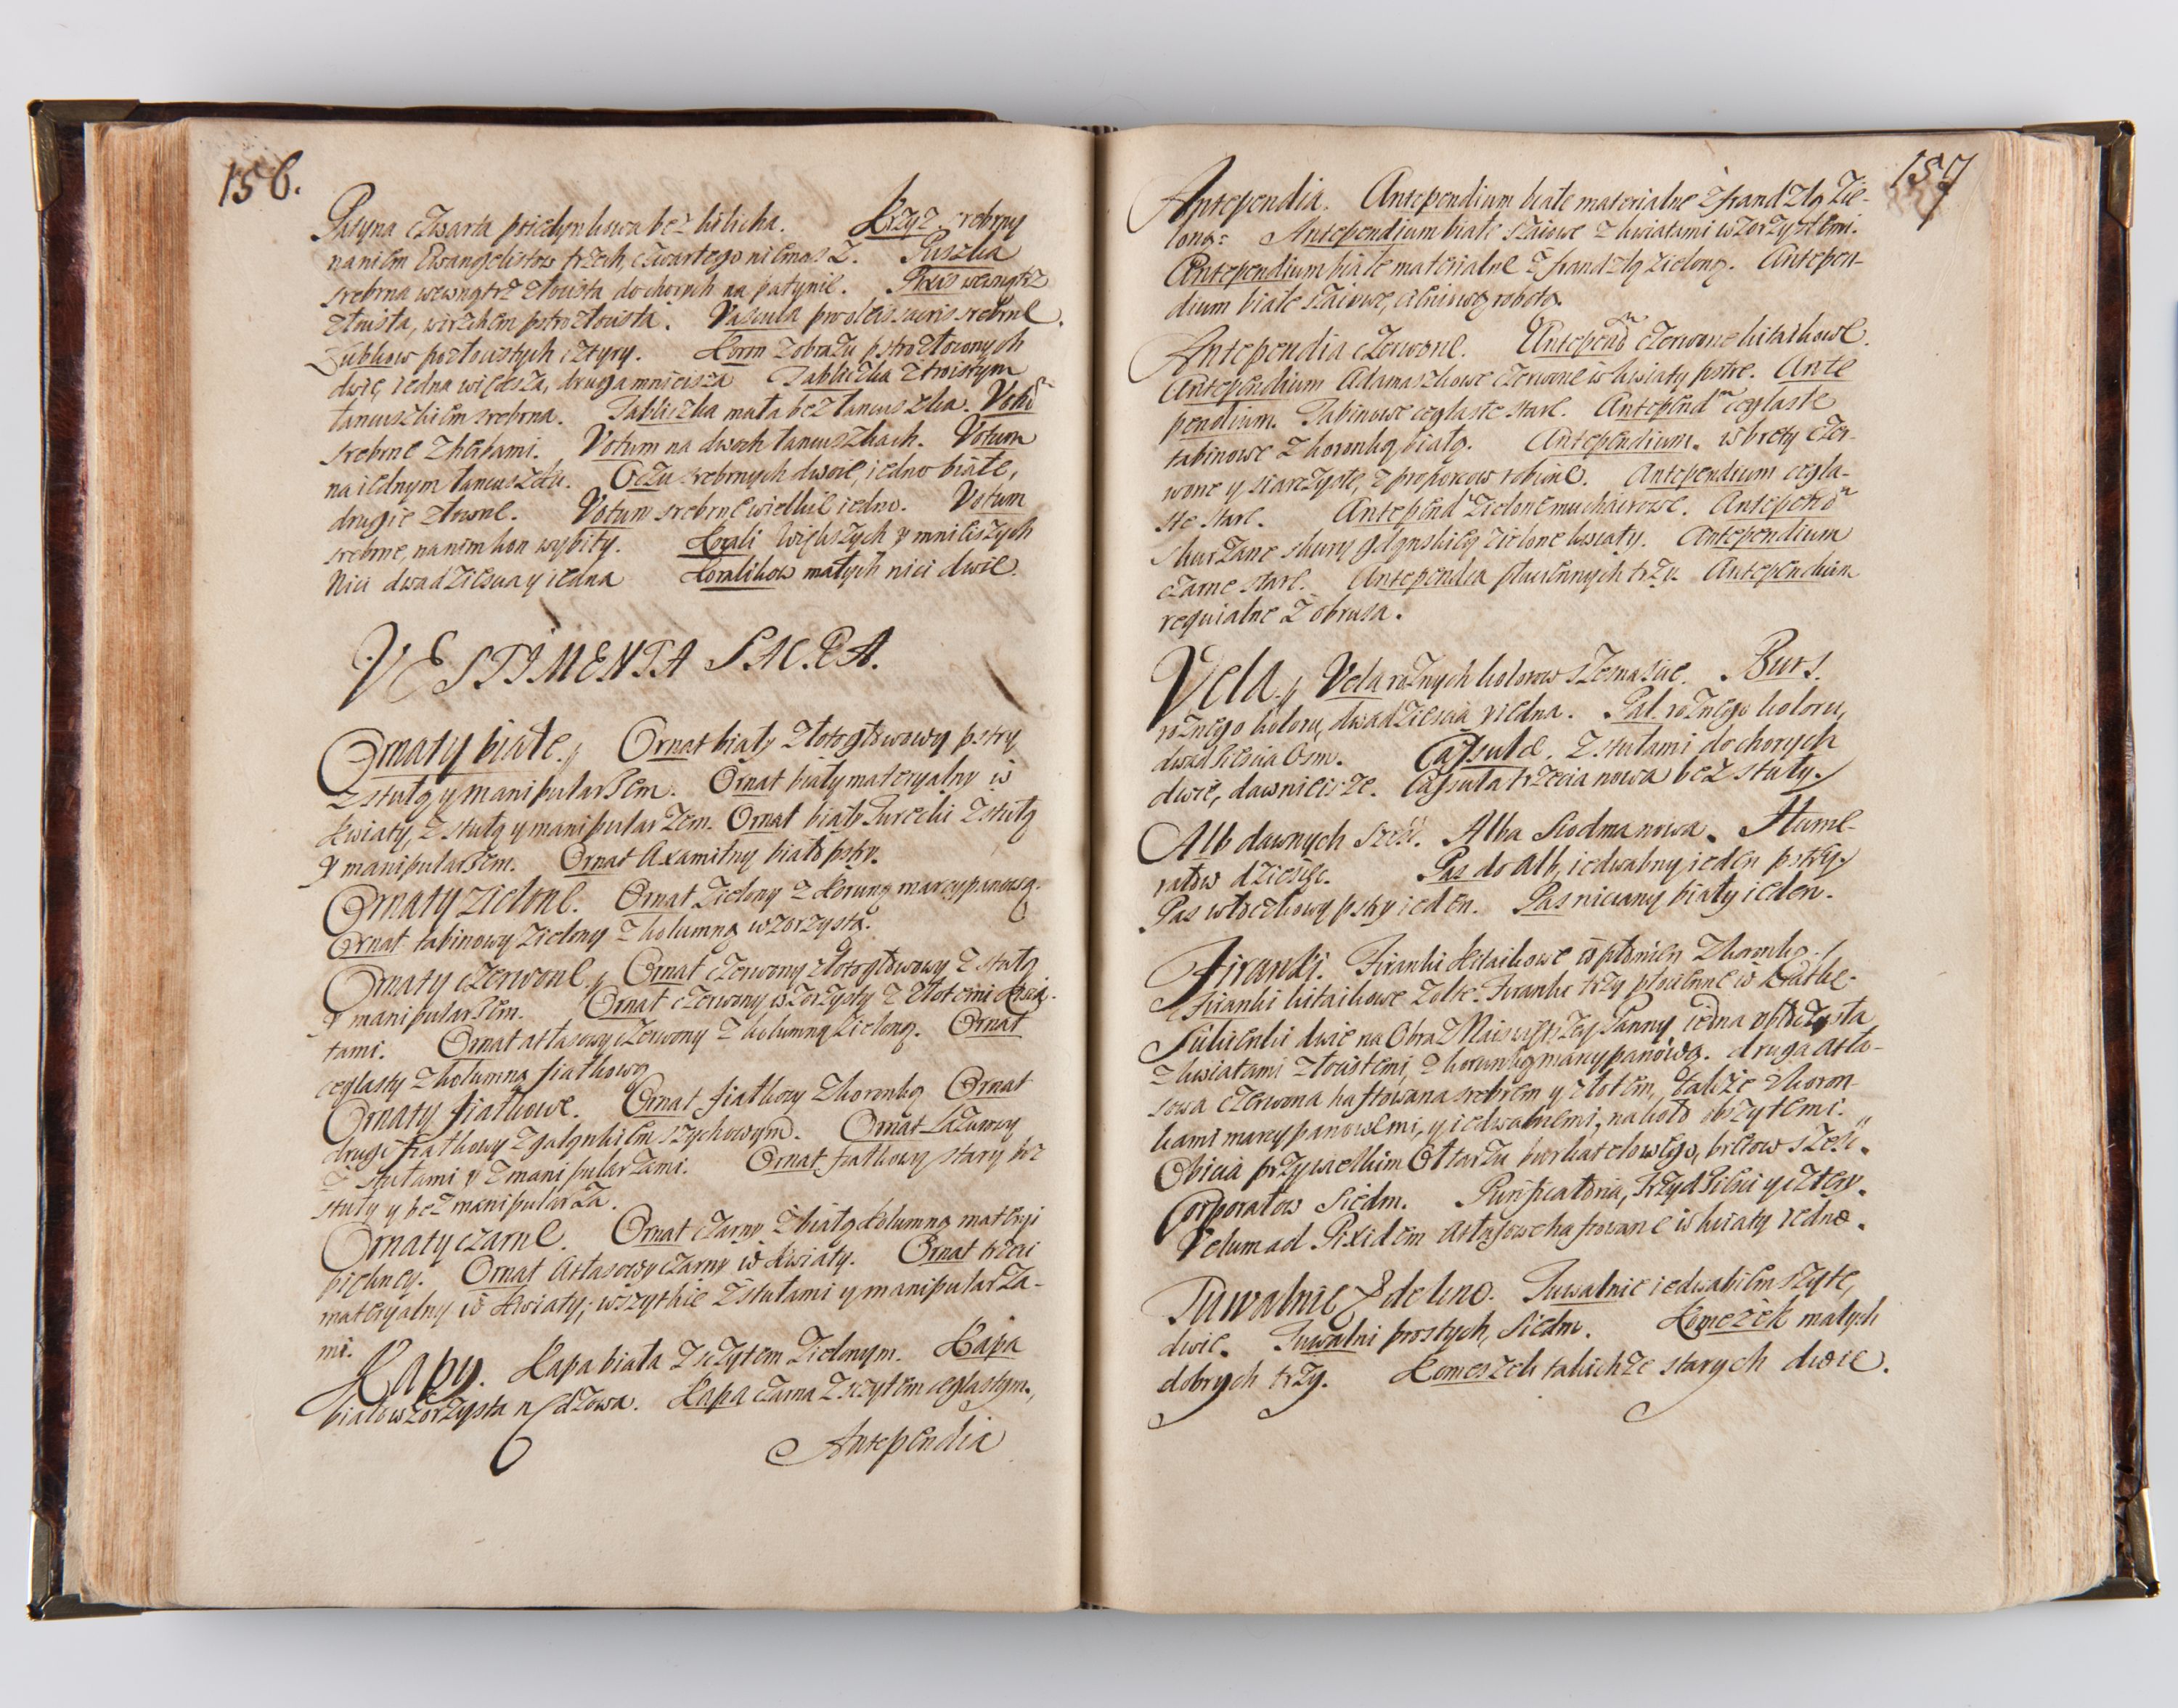 156.
Patyna czwarta poiedynkowa bez kielicha. Krzyż srebrny
na niem Ewangelistow trzech, czwartego niemasz. Puszka
srebrna wewnątrz złoista do chorych na patynie. Pixis wewnątrz
złoista, wierzchem pstrozłoista. Vascula pro oleis sacris srebrne.
Kubkow pozłoistych cztyry. Koron z obrazu pstrozłoconych
dwie, iedna większa, druga mnieisza Tabliczka z troistym
łancuszkiem srebrna. Tabliczka mała bez łancuszka. Vota
srebrne z herbami. Votum na dwoch łancuszkach. Votum
na iednym łancuszku. Oczu srebrnych dwoie, iedno białe,
drugie złocone. Votum srebrne wielkie iedno. Votum
srebrne, na nim kon wybity. Korali większych y mnieiszych
Nici dwadziescia y iedna Koralikow małych nici dwie.
VESTIMENTA SACRA.
Ornaty białe. Ornat biały złotogłowowy pstry
z stułą y manipularzem. Ornat biały materyalny w
kwiaty, z stułą y manipularzem. Ornat biały Turecki z stułą
y manipularzem. Ornat Axamitny biało pstry.
Ornaty zielone. Ornat zielony z koruną marcypanową.
Ornat tabinowy zielony z kolumną wzorzystą.
Ornaty czerwone. Ornat czerwony złotogłowowy z stułą
y manipularzem. Ornat czerwony wzorzysty z złotemi kwia-
tami. Ornat atłasowy czerwony z kolumną zieloną. Ornat
ceglasty z kolumną fiałkową
Ornaty fiałkowe. Ornat fiałkowy z koronką Ornat
drugi fiałkowy z galonkiem szychowym. Ornat Lazurowy
z stułami y z manipularzami. Ornat fiałkowy stary bez
stuły y bez manipularza.
Ornaty czarne. Ornat czarny z białą kolumną materyi
piękney. Ornat Atłasowy czarny w kwiaty. Ornat trzeci
materyalny w kwiaty, wszytkie z stułami y manipularza-
mi.
Kapy. Kapa biała z szczytem zielonym. Kapa
biało wzorzysta rysdzowa. Kapa czarna z szczytem ceglastym.
Antependia
157
Antependia. Antependium białe materialne z frandzlą zie-
loną: Antependium białe szaiowe z kwiatami wzorzystemi.
Antependium białe materialne z frandzlą zieloną. Antepen-
dium białe szaiowe, cieniową robotą.
Antependia czerwone. Antepend czerwone kitaikowe.
Antependium Adamaszkowe czerwone w kwiaty pstre. Ante
pendium. Tabinowe ceglaste stare. Antepend ceglaste
tabinowe z koronką białą. Antependium. w brety czer-
wone y siarczyste, z proporcow robione. Antependium cegla-
ste stare. Antepend zielone muchairowe. Antepend
skurzane skury gdanskiey zielone kwiaty. Antependium
czarne stare. Antependia płuciennych trzy. Antependium
requialne z obrusa.
Vela. Vela rożnych kolorow szesnascie. Burs.
rożnego koloru, dwadziescia y iedna. Pal. rożnego koloru,
dwadziescia osm. Cassulæ. z stułami do chorych
dwie, dawnieisze. Cassula trzecia nowa bez stuły.
Alb dawnych szesc. Alba siodma nowa. Hume-
rałow dziesięc. Pas do Alb, iedwabny ieden pstry.
Pas włoczkowy pstry ieden. Pas niciany biały ieden.
Firanki. Firanki kitaikowe w płomien z koronką.
Firanki kitaikowe żołte. Firanki trzy płocienne w kratke.
Sukienki dwie na Obraz Naiswiętszey Panny iedna wzorzysta
z kwiatami złoistemi, z korunką marcypanową. druga Atła-
sowa czerwona haftowana srebrem y złotem, także z koron-
kami marcypanowemi, y iedwabnemi, na koło obszytemi.
Obicia przy wielkim Ołtarzu burkatelowego, bretow szesc.
Corporałow siedm. Purificatoria, trzydziesci y cztery.
Velum ad Pixidem Atłasowe haftowane w kwiaty iedno.
Tuwalnie z dekno. Tuwalnie iedwabiem szyte,
dwie. Tuwalni prostych, siedm. Komeżek małych
dobrych trzy. Komeszek takichże starych dwie.